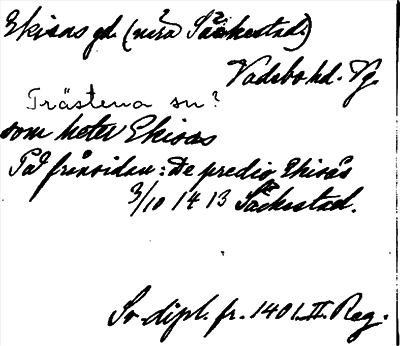 Ekisas gd. (nära Säckestad.)
Vadsbo hd. Vg.
Trästena sn?
som heter Ekisas
På frånsidan: De predio Ekisås
3/10 1413 Säckestad.
Sv. dipl. fr. 1401. II. Reg.